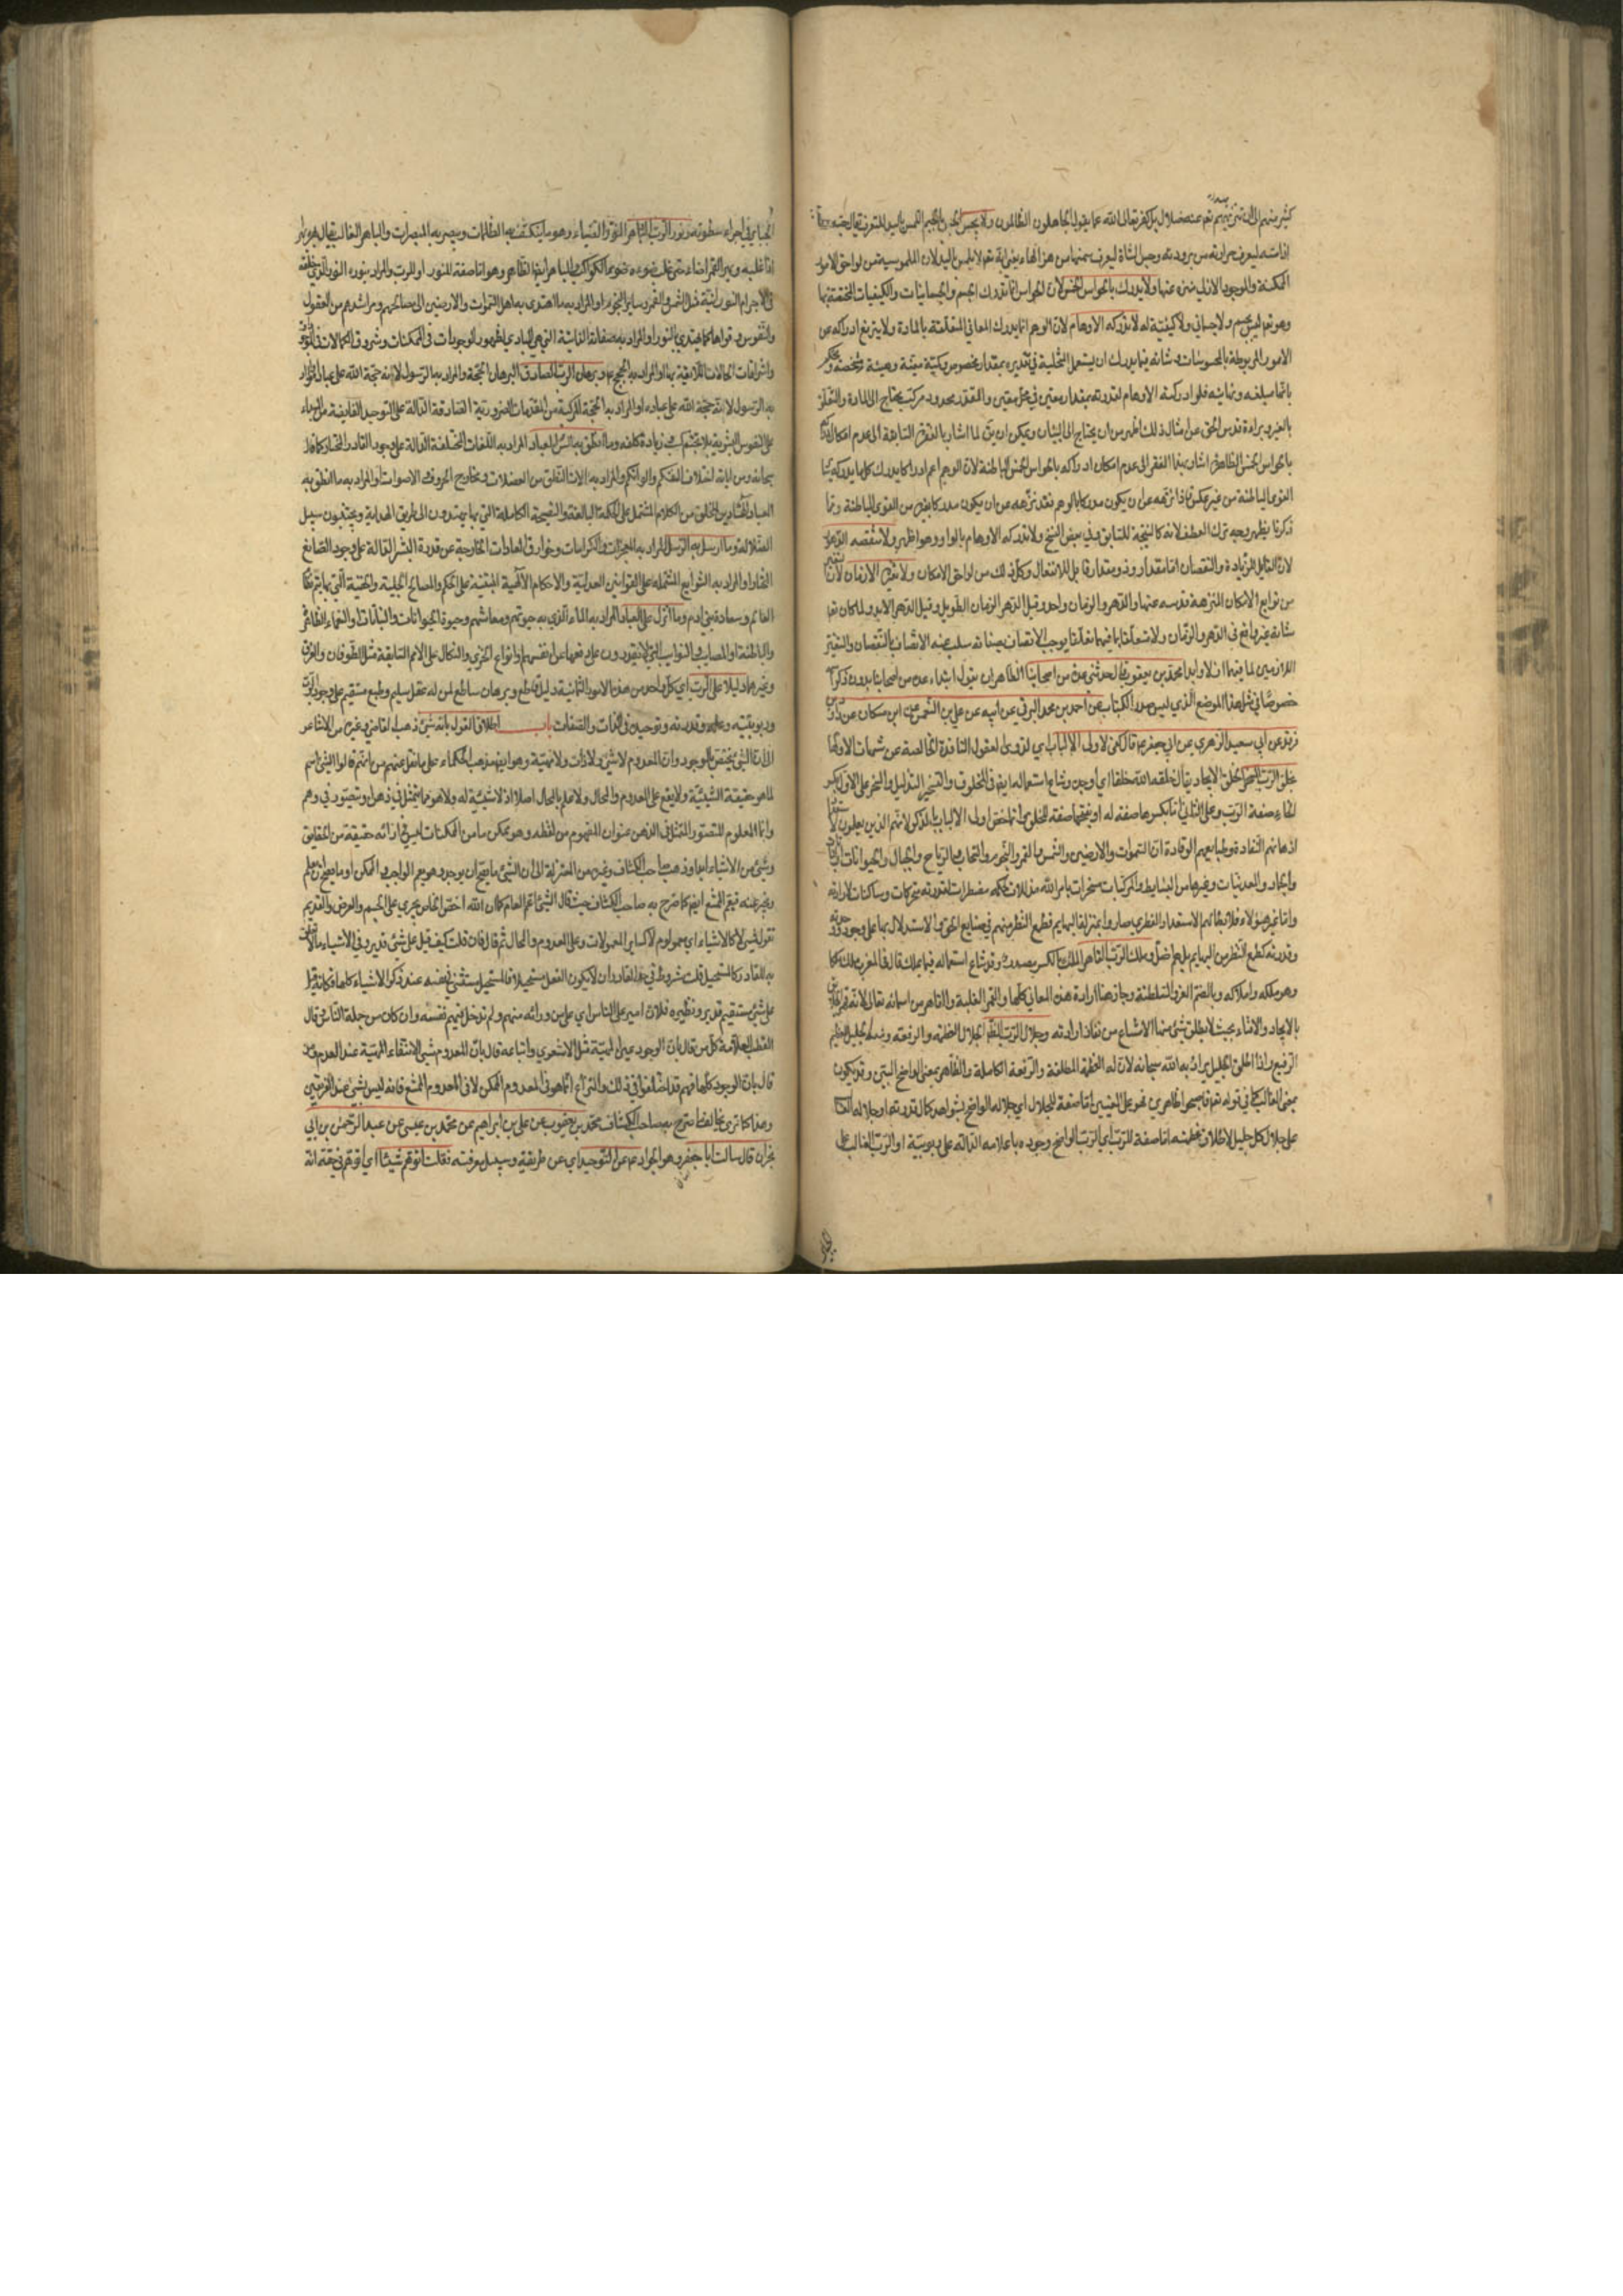 كثير منهم إلى ... نعم عنه ضلال بل كفر تعالى الله عما يقول الجاهلون الظالمون ولا يحس الحس بالجيم المس باليد للتعرف تعال جسه
اذا مسه ليعرف حرارته من برودته وجس الشاة ليعرف سمنها من هزالها يعني انه تعم لا يلمس اليد لان الملموسية من لواحق الامور
الممكنة والموجود الازلي منزه عنها ولا يدرك بالحواس الخمس لان الحواس انما تدرك الجسم والجسمانيات والكيفيات المختصة بها
وهو تعم ليس بجسم ولا جسماني ولا كيفية له لا تدركه الاوهام لان الوهم انما يدرك المعاني المتعلقة بالمادة ولا يترفع ادراكه عن
الامور المربوطة بالمحسوسات وشانه فيما يدرك ان يستعمل المتخيلة في تقديره بمقدار مخصوص وكمية معينة وهيئة مشخصة ويحكم
بانها مبلغه ونهايته فلو ادركته الاوهام لقدرته بمقدار معين في محل معين والمقدر محدود مركب يحتاج الى المادة والتعلق
بالغير وبراءة قدس الحق عن امثال ذلك اظهر من ان يحتاج الى البيان ويمكن ان يق لما اشار بالفقرة السابقة الى عدم امكان ادراكه
بالحواس الخمس الظاهرة اشار بهذا الفقرة الى عدم امكان ادراكه بالحواس الخمس الباطنة لان الوهم اعم ادراكا يدرك كلما يدركه سائر
القوى الباطنة من غير عكس فاذا نزهه عن ان يكون مدركا بالوهم فقد نزهه عن ان يكون مدركا بغيره من القوى الباطنة وبما
ذكرنا يظهر وجه ترك العطف لانه كالنتيجة للسابق وفي بعض النسخ ولا تدركه الاوهام بالواو وهو اظهر ولا تنقصه الدهور
لان القابل للزيادة والنقصان اما مقدار او ذو مقدار قابل للانفعال وكل ذلك من لواحق الامكان ولا تغيره الازمان لان التغير
من توابع الامكان المنزهة قدسه عنها والدهر والزمان واحد وقيل الدهر الزمان الطويل وقيل الدهر الابد ولما كان تعم
شانه غير واقع في الدهر والزمان ولا متعلقا بما فيهما تعلقا يوجب الاتصاف بصفاته سلب عنه الاتصاف بالنقصان والتغير
اللازمين لما فيهما ازلا وابدا محمد بن يعقوب قال حدثني عدة من اصحابنا الظاهر ان يقول ابتداء عدة من اصحابنا بدون ذكر
خصوصا في مثل هذا الموضع الذي ليس صدر الكتاب عن احمد بن محمد البرقي عن ابيه عن علي بن النعمن عن ابن مسكان عن داود بن
فرقد عن ابي سعيد الزهري عن ابي جعفر ع قال كفى لاولى الالباب اي لذوي العقول النافذة الخالصة عن شبهات الاوهام
بخلق الرب المسخر الخلق الايجاد يقال خلقه الله خلقا اي اوجده وشاع استعماله ايضا في المخلوق والتسخير التذليل والمسخر على الاول بكسر
الخاء صفة الرب وعلى الثاني اما بكسرها صفة له او بفتحها صفة للخلق وانما خص اولى الالباب بالذكر لانهم الذين يعلمون
اذهانهم النقادة وطبايعهم الوقادة ان السموات والارضين والشمس والقمر والنجوم والسحاب والرياح والجبال والحيوانات
والجماد والمعدنيات وغيرها من البسايط والمركبات مسخرات بامر الله مذللات لحكمه مضطرات لقدرته متحركات وساكنات لارادته
واما غير هؤلاء فلابطالهم الاستعداد الفطري صاروا بمنزلة البهايم قطع النظر منهم في صنايع الحق والاستدلال بها على وجوده
وقدرته كقطع النظر من البهايم بل هم اضل وملك الرب القاهر الملك بالكسر مصدر وقد شاع استعماله فيما يملك قال في المغرب ملكه ملكا
وهو ملكه واملاكه وبالضم العز والسلطنة وجاز هنا ارادة هذه المعاني كلها والقهر الغلبة والقاهر من اسمائه تعالى لانه قهر
بالايجاد والافناء بحيث لا يطيق شيء منها الامتناع من نفاذ ارادته وجلال الرب الظاهر الجلال العظمة والرفعة ومنه الجليل العظيم
الرفيع واذا اطلق الجليل يراد به الله سبحانه لان له العظمة المطلقة والرفعة الكاملة والظاهر بمعنى الواضح البين وقد يكون
بمعنى الغالب كما في قوله تعم فاصبحوا ظاهرين فهو على المعنيين اما صفة للجلال اي جلاله الواضح بشواهد كمال قدرته او جلاله الغالب
على جلال كل جليل لاطلاق عظمته او اما صفة للرب اي الرب الواضح وجوده باعلامه الدالة على ربوبيته او الرب الغالب على
الجبابرة في اجراء سطوته ونور الرب الباهر النور الضياء وهو ما ينكشف به الظلمات ويبصر به المبصرات والباهر الغالب يقال بهره بهرا
اذا غلبه وبهر القمر اضاء حتى غلب ضوءه ضوء الكواكب والباهر ايضا الظاهر وهو اما صفة للنور او للرب والمراد بنوره النور الذي خلقه
في الاجرام النورانية مثل الشمس والقمر وسائر النجوم او المراد به ما اهتدى به اهل السموات والارضين الى مصالحهم ومراشدهم من العقول
والنفوس وقواها كما يهتدى بالنور او المراد به صفاته الذاتية التي هي المبادي لظهور الموجودات في الممكنات وشروق الكمالات في
واشراقات الحالات اللايقة بها او المراد به الحجج ع وبرهان الرب الصادق البرهان الحجة والمراد به الرسول لانه حجة الله على عباده او المراد
به الرسول لانه حجة الله على عباده او المراد به الحجة المركبة من المقدمات الضرورية الصادقة الدالة على التوحيد الفايضة من المبداء
على النفوس البشرية بلا تجشم كسب زيادة كلفة وما انطق به السن العباد المراد به اللغات المختلفة الدالة على وجود القادر المختار كما قال
سبحانه ومن اياته اختلاف السنتكم والوانكم والمراد به الات النطق من العضلات ومخارج الحروف الاصوات او المراد به ما انطق به
العباد الهادين للخلق من الكلام المشتمل على الحكمة البالغة والنصيحة الكاملة التي بها يهتدون الى طريق الهداية ويجتنبون سبيل
الضلالة وما ارسل به الرسل المراد به المعجزات والكرامات وخوارق العادات الخارجة عن قدرة البشر الدالة على وجود الصانع
القادر او المراد به الشرايع المشتملة على القوانين العدلية والاحكام الالهية المبنية على الحكم والمصالح الجلية والخفية التي بها يتم نظام
العالم وسعادة بني ادم وما انزل على العباد المراد به الماء الذي به حيوتهم ومعاشهم وحيوة الحيوانات والنباتات او النعماء الظاهرة
والباطنة او المصايب والنوايب التي لا يقدرون على دفعها عن انفسهم وانواع الخزي والنكال على الامم السابقة مثل الطوفان والغرق
وغيرها دليلا على الرب اي كل واحد من هذه الامور الثمانية دليل قاطع وبرهان ساطع لمن له عقل سليم وطبع مستقيم على وجود الرب
وربوبيته وعلمه وقدرته وتوحيده في الذات والصفات باب اطلاق القول بانه شيء ذهب القاضي وغيره من الاشاعرة
الى ان الشيء يختص بالموجود وان المعدوم لا شيء ولا ذات ولا مهية وهو ايضا مذهب الحكماء على ما نقل عنهم من انهم قالوا الشيء اسم
لما هو حقيقة الشيئية ولا يقع على المعدوم والمحال ولا علم بالمحال اصلا اذ لا شيئية له ولا هو مما يتمثل في ذهن او يتصور في وهم
وانما المعلوم المتصور المتمثل في الذهن عنوان المفهوم من لفظه وهو ممكن ما من الممكنات ليس في ازائه حقيقة من الحقايق
وشيء من الاشياء ابدا وذهب صاحب الكشاف وغيره من المعتزلة الى ان الشيء ما يصح ان يوجد وهو يعم الواجب والممكن او ما يصح ان يعلم
ويخبر عنه فيعم الممتنع ايضا كما صرح به صاحب الكشاف حيث قال الشيء اعم العام كما ان الله اخص الخاص يجري على الجسم والعرض والقديم
تقول شيء لا كالاشياء اي معلوم لا كساير المعلومات وعلى المعدوم والمحال ثم قال فان قلت كيف قيل على كل شيء قدير وفي الاشياء ما لا تعلق
به للقادر كالمستحيل قلت مشروط في حد القادر ان لا يكون الفعل مستحيلا فالمستحيل مستثنى في نفسه عند ذكر الاشياء كلها فكانه قيل
على كل شيء مستقيم قدير ونظيره فلان امير على الناس اي على من وراءه منهم ولم يدخل فيهم نفسه وان كان من جملة الناس قال
القطب العلامة كل من قال بان الوجود عين المهية مثل الاشعري واتباعه قال بان المعدوم ليس بشيء لانتفاء المهية عند العدم ومن
قال بان الوجود غيرها فهم قد اختلفوا في ذلك والنزاع انما هو في المعدوم الممكن لا في المعدوم الممتنع فانه ليس بشيء عند الفريقين
وهذا كما ترى مخالف لما صرح به صاحب الكشاف محمد بن يعقوب عن علي بن ابراهيم عن محمد بن عيسى عن عبد الرحمن بن ابي
نجران قال سالت ابا جعفر وهو الجواد ع عن التوحيد اي عن طريقته وسبيل معرفته فقلت اتوهم شيئا اي اتوهم في حقه انه